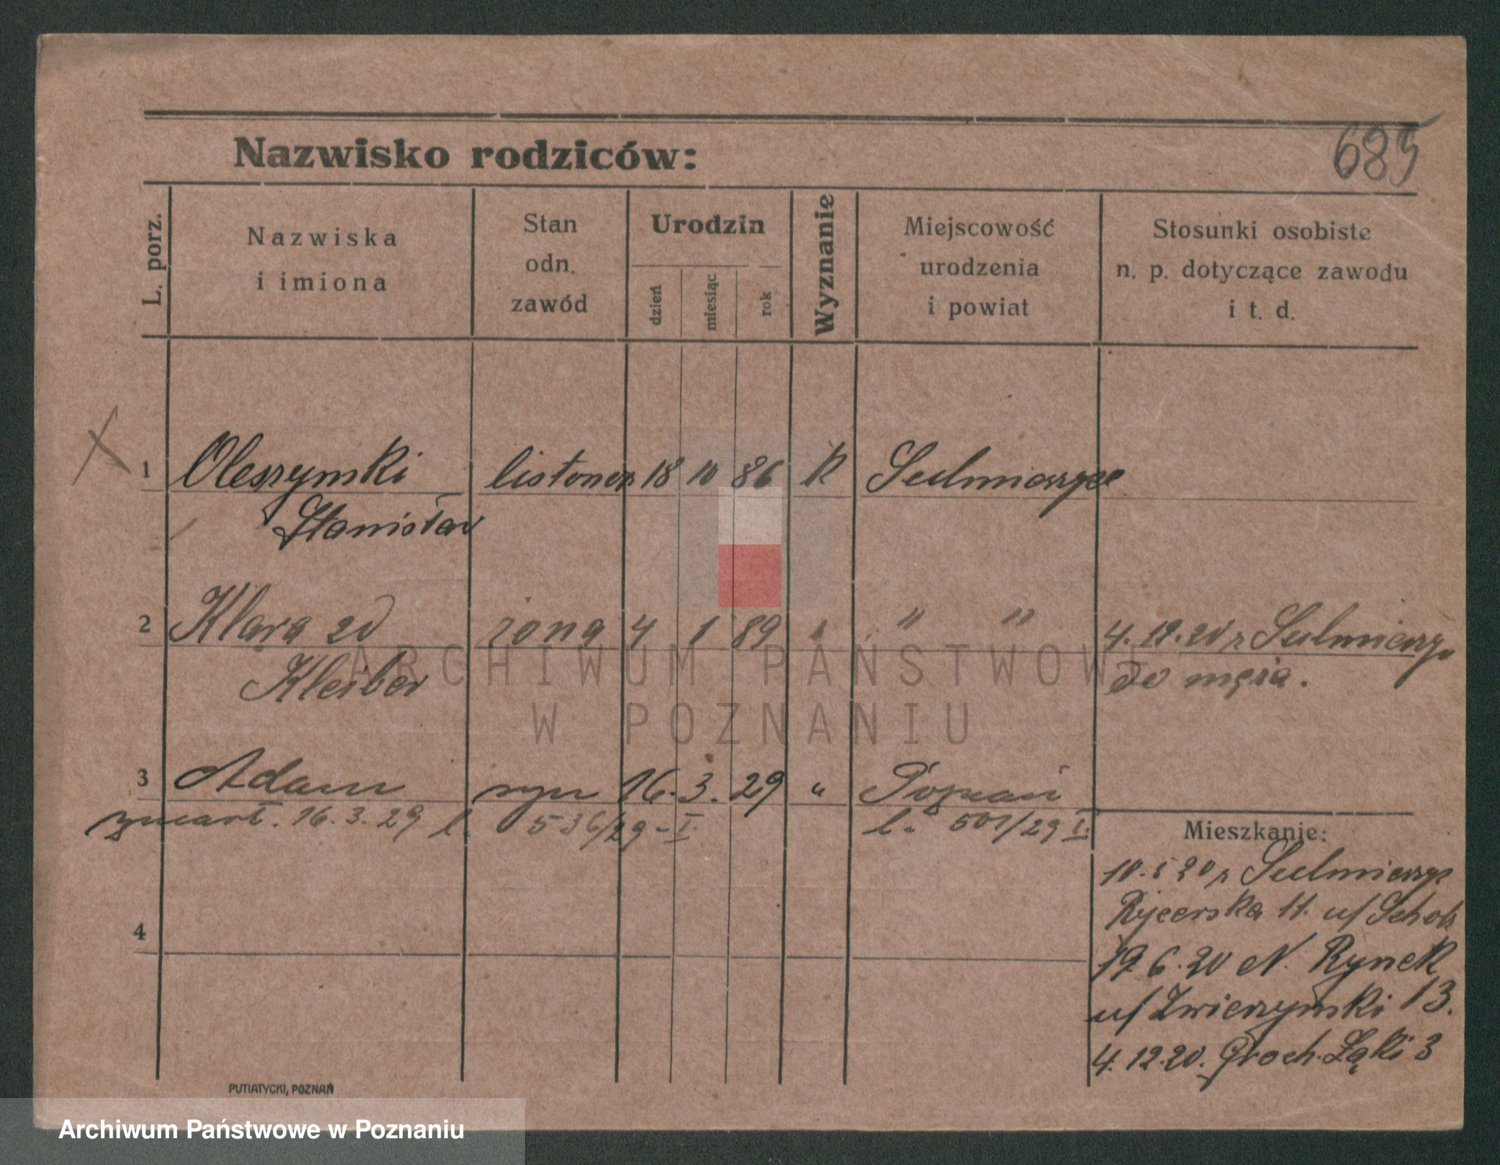 685
Nazwisko rodziców:
L. porz.
Nazwiska
i imiona
Stan
odn.
zawód
Urodzin
dzień
miesiąc
rok
Wyznanie
Miejscowość
urodzenia
i powiat
Stosunki osobiste
n. p. dotyczące zawodu
i t. d.
1 Oleszynski listonosz 18 10 86 K Sulmierzyce
Stanisław
2 Klara zd żona 4 1 89 " " " 4.12.20 z Sulmierzyc
Kleiber do męża.
3 Adam syn 16. 3. 29 " Poznań
zmarł. 16.3.29 l. 536/29-I. l. 501/29 I.
Mieszkanie:
10.5 20 z Sulmierzyc
Rycerska 11. u/ Scholz
19.6.20 N. Rynek
u/ Zwierzynski 13.
4.12.20. Groch. Łąki 3
4
PUTIATYCKI, POZNAŃ
ARCHIWUM PAŃSTWOWE
W POZNANIU
Archiwum Państwowe w Poznaniu